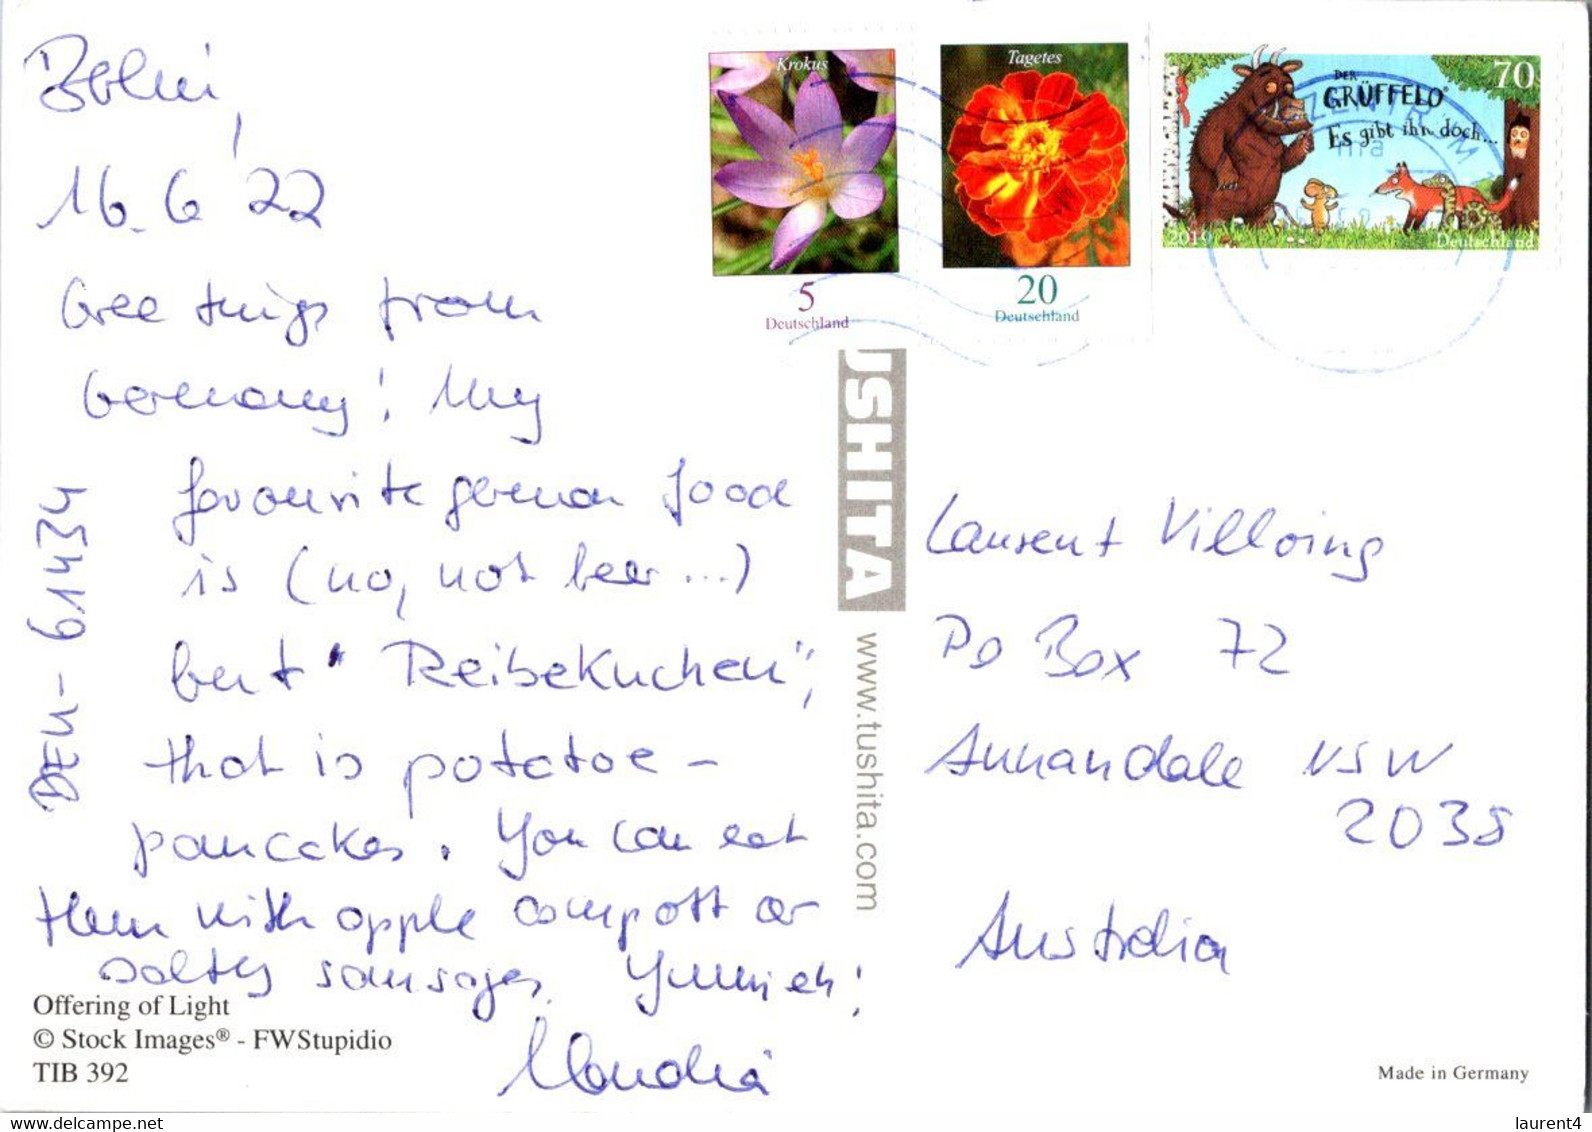 Krokus
5
Deutschland
Tagetes
20
Deutschland
DER
GRÜFFELO®
Es gibt ihn doch...
70
2019
Deutschland
16.6 22
Greetings from
Germany! My
favourite german food
is (no, not beer ...)
but "Reibekuchen",
that is potatoe-
pancakes. You can eat
them with apple compott or
salty sausages.
Claudia
DEU-61434
USHITA
www.tushita.com
Laurent Villoing
PO Box 72
Annandale NSW
2038
Australia
Offering of Light
© Stock Images® - FWStupidio
TIB 392
Made in Germany
delcampe.net
laurent4